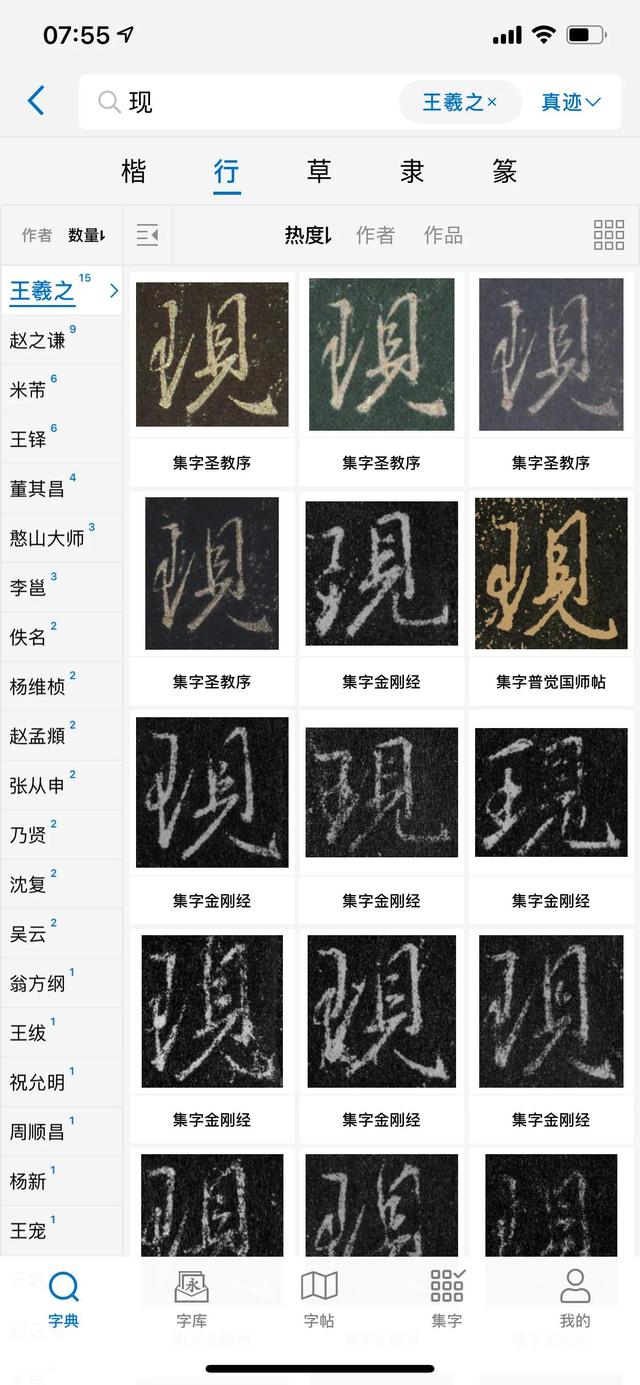 07:55
现 王羲之× 真迹
楷 行 草 隶 篆
作者 数量 热度 作者 作品
王羲之 15
赵之谦 9
米芾 6
王铎 6
董其昌 4
憨山大师 3
李邕 3
佚名 2
杨维桢 2
赵孟頫 2
张从申 2
乃贤 2
沈复 2
吴云 2
翁方纲 1
王绂 1
祝允明 1
周顺昌 1
杨新 1
王宠 1
現 現 現
集字圣教序 集字圣教序 集字圣教序
現 現 現
集字圣教序 集字金刚经 集字普觉国师帖
現 現 現
集字金刚经 集字金刚经 集字金刚经
現 現 現
集字金刚经 集字金刚经 集字金刚经
現 現 現
永
字典 字库 字帖 集字 我的